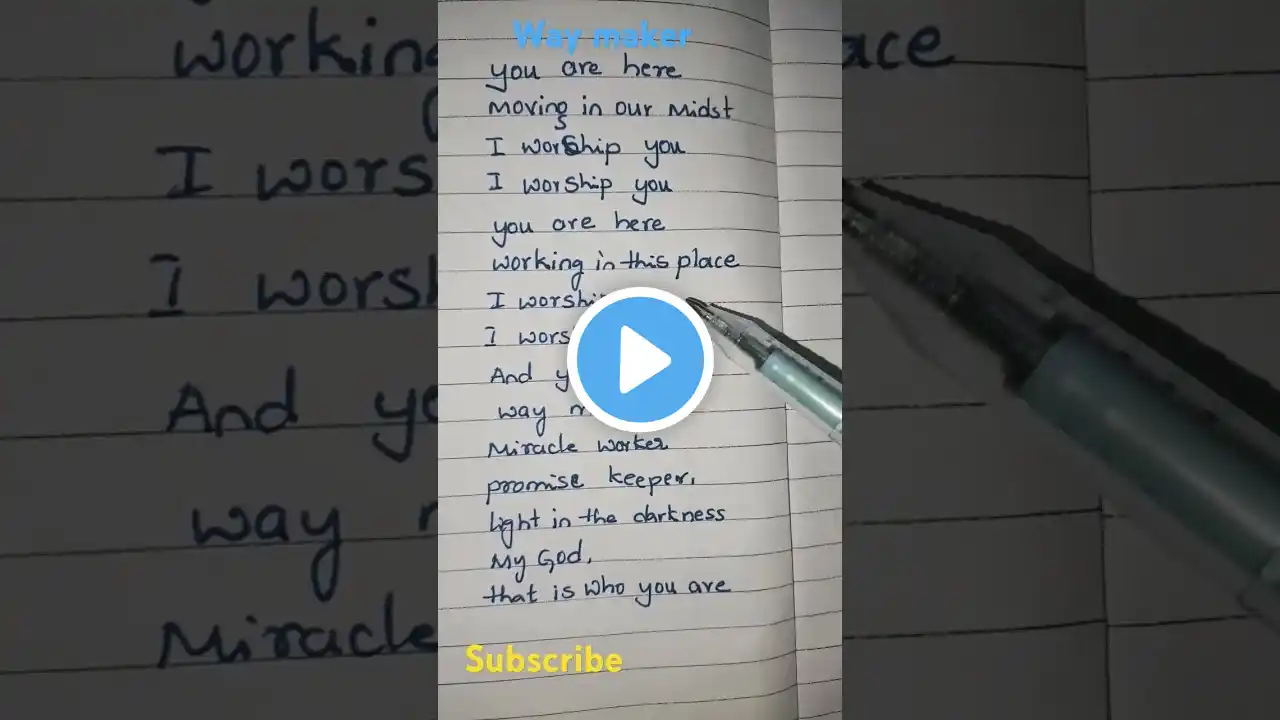 Way maker
you are here
moving in our midst
I worship you
I worship you
you are here
working in this place
I worshi
I wors
And y
way m
Miracle worker
promise keeper,
light in the darkness
My God,
that is who you are
Subscribe
working
ace
I wors
I worsh
And ye
way
Miracle